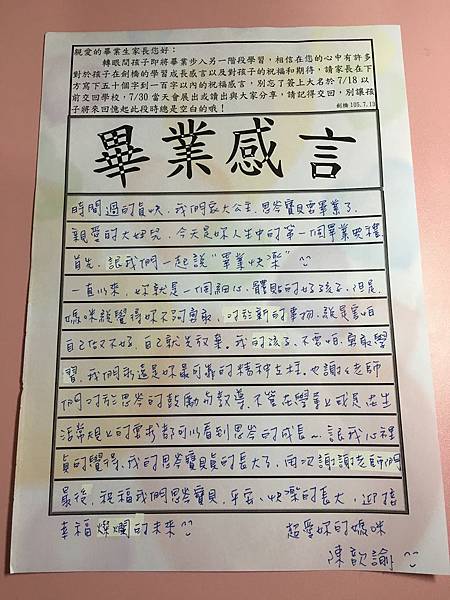 親愛的畢業生家長您好：
轉眼間孩子即將畢業步入另一階段學習，相信在您的心中有許多
對於孩子在劍橋的學習成長感言以及對孩子的祝福和期待，請家長在下
方寫下五十個字到一百字以內的祝福感言，別忘了簽上大名於 7/18 以
前交回學校，7/30 當天會展出或讀出與大家分享，請記得交回，別讓孩
子將來回憶起此段時總是空白的哦！ 劍橋 105.7.13
畢業感言
時間過的真快，我們家大公主，思岑寶貝要畢業了，
親愛的大女兒，今天是妳人生中的第一個畢業典禮
首先，讓我們一起說"畢業快樂"
一直以來，妳就是一個細心，體貼的好孩子，但是，
媽咪總覺得妳不夠勇敢，對於新的事物，總是害怕
自己做不好，自己就先放棄。我的孩子，不要怕，勇敢學
習，我們永遠是妳最可靠的精神支柱。也謝謝老師
們對於思岑的鼓勵與教導，不管在學業上或是在生
活常規上的要求都可以看到思岑的成長～，讓我心裡
真的覺得，我的思岑寶貝真的長大了，再次謝謝老師們
最後，祝福我們思岑寶貝，平安、快樂的長大，迎接
幸福燦爛的未來
超愛妳的媽咪
陳歆諭